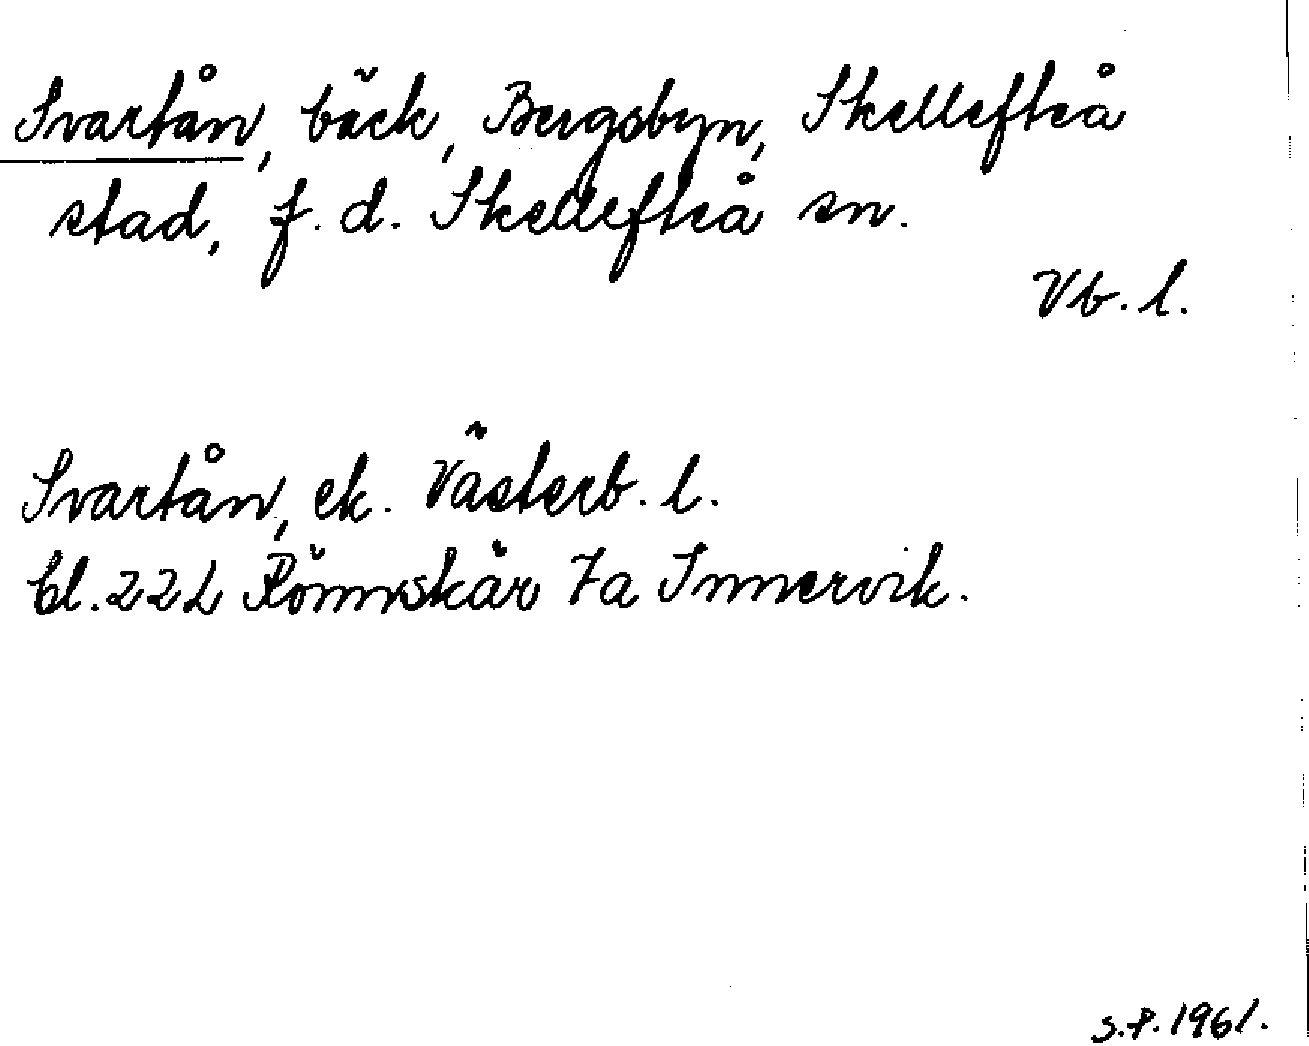 Svartån, bäck, Bergsbyn, Skellefteå
stad, f. d. Skellefteå sn.
Vb. l.
Svartån, ek. Västerb. l.
bl. 22L Rönnskär 7a Innervik.
S.P. 1961.